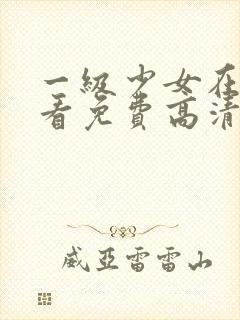 一級少女在
看免費高清
威亞雷雷山